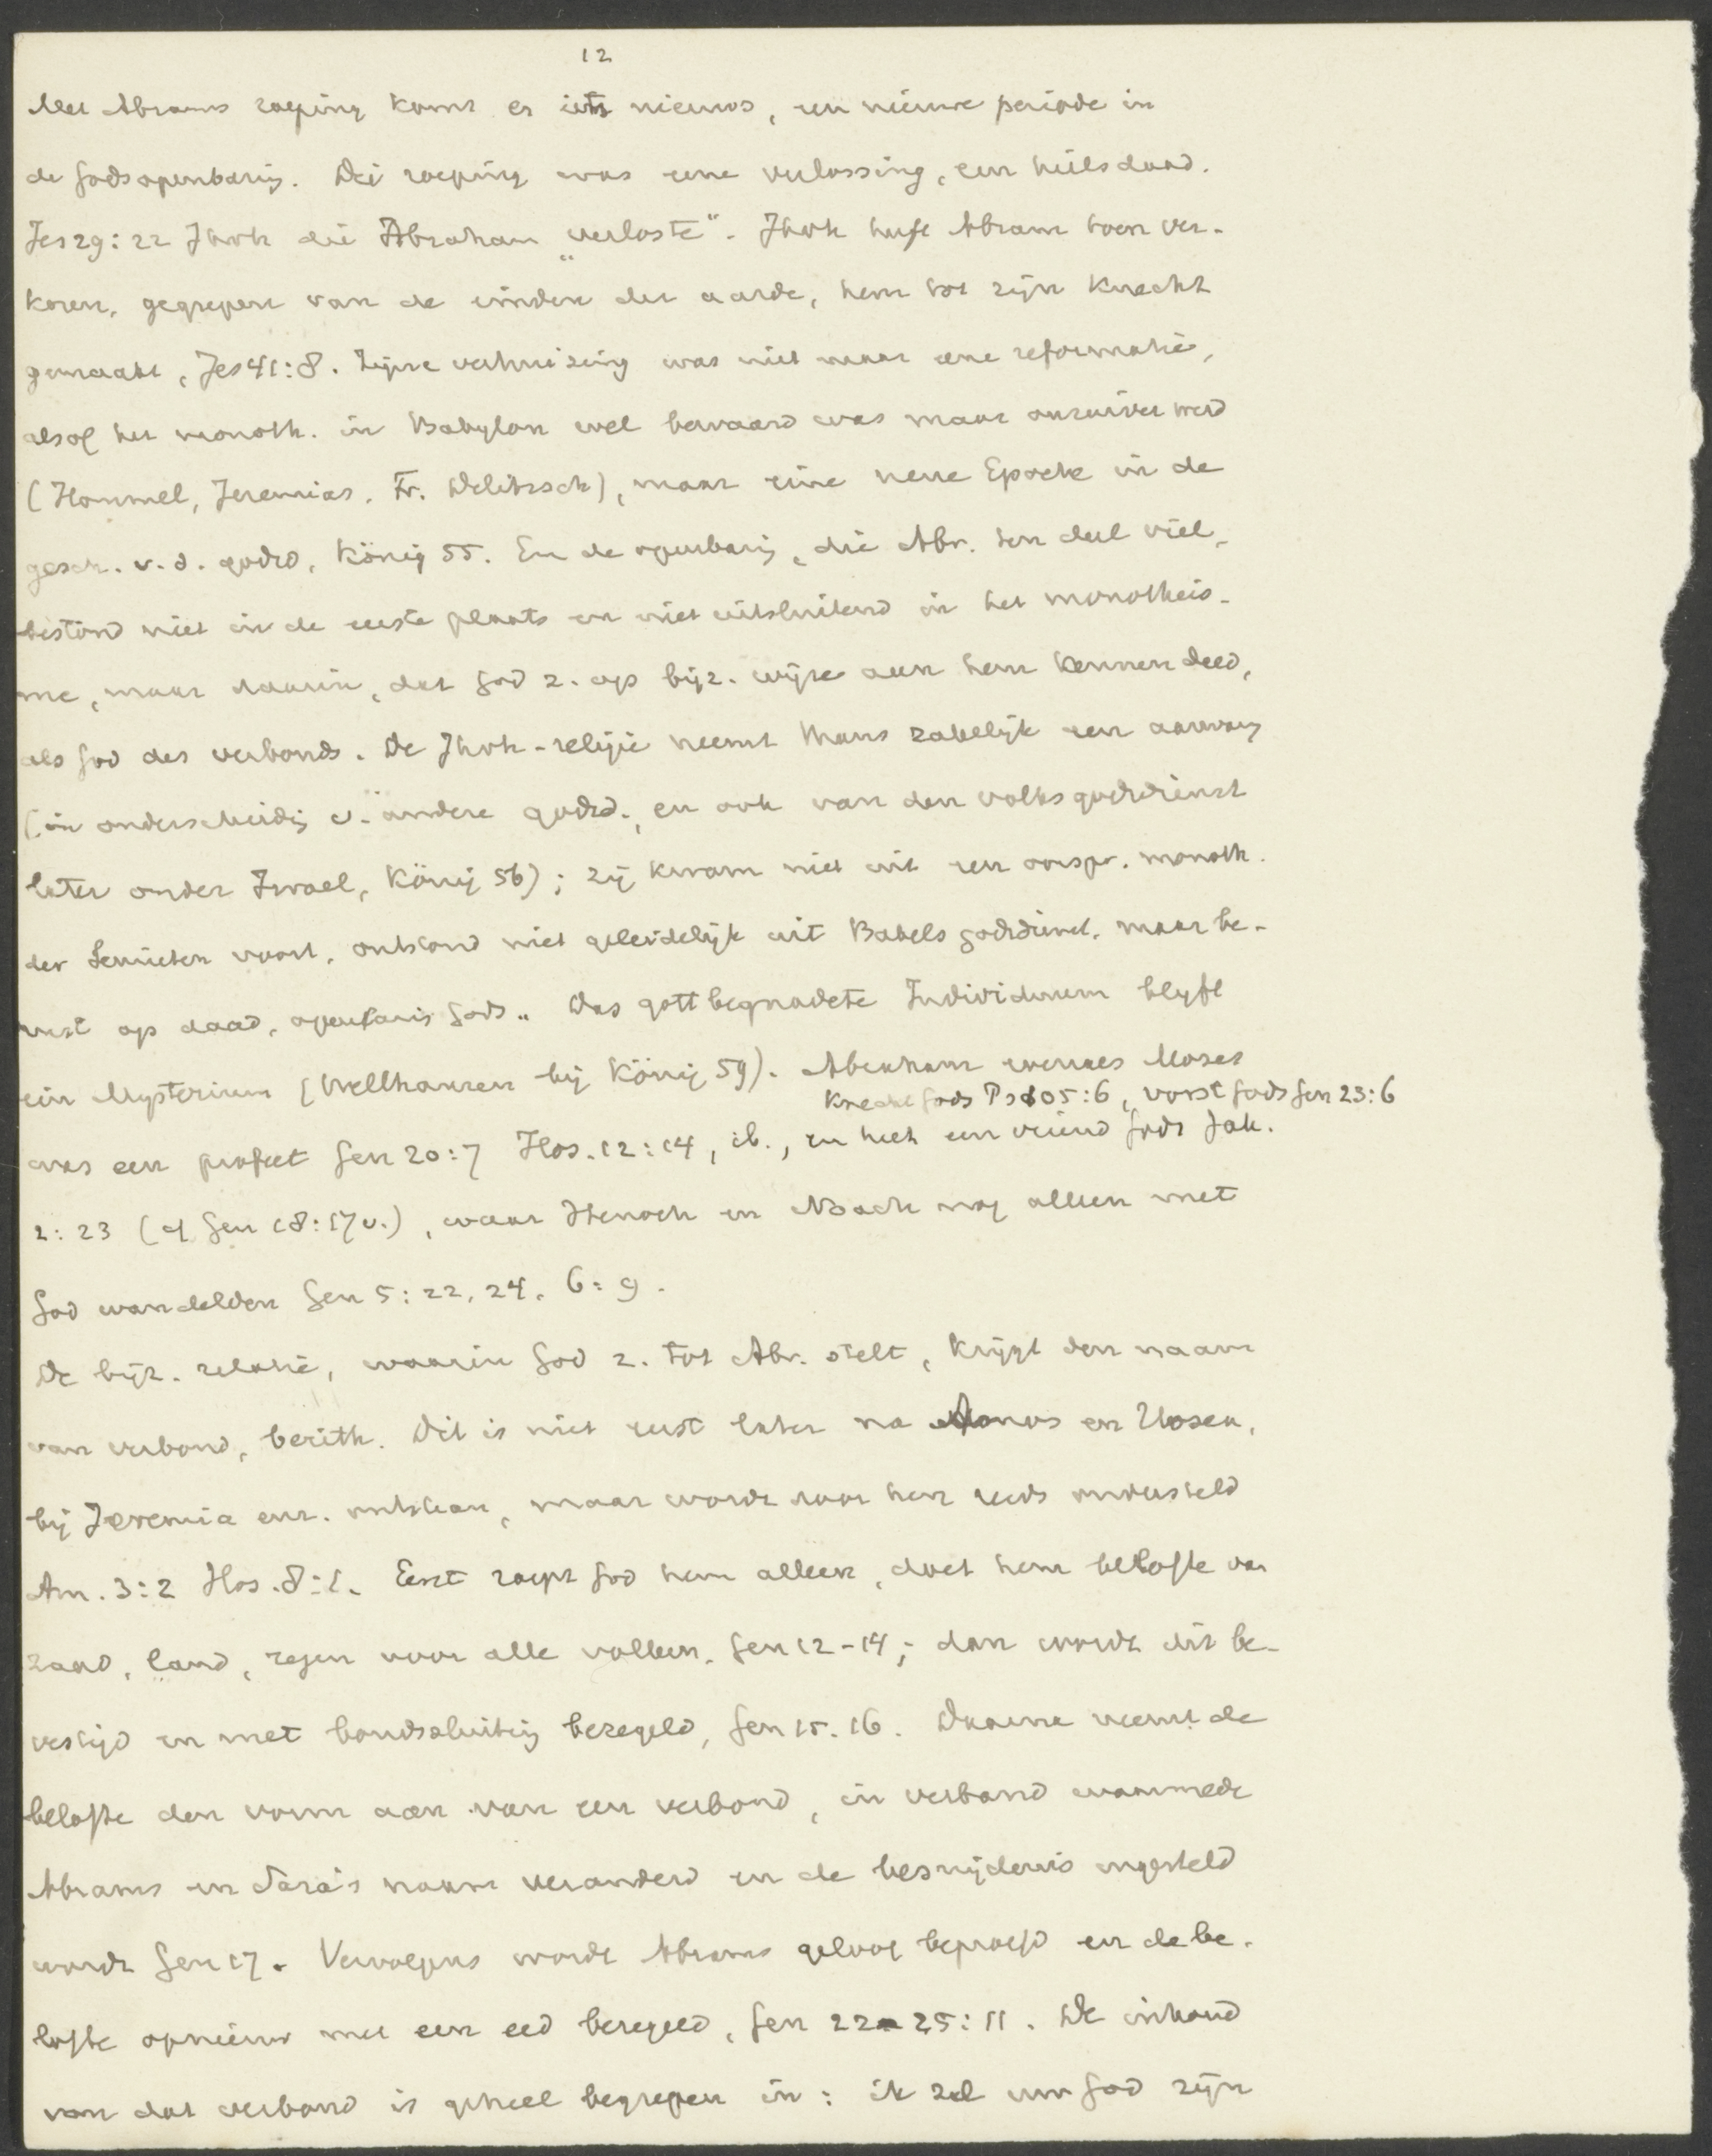 12
Met Abrams roeping komt er iets nieuws, een nieuwe periode in
de Godsopenbaring. Die roeping was eene verlossing, een heilsdaad.
Jes 29:22 Jhvh die Abraham „verloste”. Jhvh heeft Abram toen ver-
koren, gegrepen van de einden der aarde, hem tot zijn Knecht
gemaakt, Jes 41:8. Zijne verhuizing was niet maar eene reformatie,
alsof het monoth. in Babylon wel bewaard was maar onzuiver werd
(Hommel, Jeremias, Fr. Delitzsch), maar eine neue Epoche in de
gesch. v. d. godsd, König 55. En de openbarig, die Abr. ten deel viel,
bestond niet in de eerste plaats en niet uitsluitend in het monotheis-
me, maar daarin, dat God z. op bijz. wijze aan hem kennen deed,
als God des verbonds. De Jhvh-religie neemt thans zakelijk een aanvang
(in onderscheidig v. andere godsd., en ook van den volksgodsdienst
later onder Israel, König 56); zij kwam niet uit een oorspr. monoth.
der Semieten voort, ontstond niet geleidelijk uit Babels godsdienst, maar be-
rust op daad, openbaris Gods. „Das gottbegnadete Individuum blijft
ein Mysterium (Wellhausen bij König 59). Abraham evenals Mozes
Knecht Gods Ps 105:6, vorst Gods Gen 23:6
was een profeet Gen 20:7 Hos. 12:14, ib., en heet een vriend Gods Jak.
2:23 (cf Gen 18:17v.), waar Henoch en Noach nog alleen met
God wandelden Gen 5:22, 24, 6:9.
De bijz. relatie, waarin God z. tot Abr. stelt, krijgt den naam
van verbond, berith. Dit is niet eerst later na Amos en Hosea,
bij Jeremia enz. ontstaan, maar wordt door hen reeds ondersteld
Am. 3:2 Hos. 8:1. Eerst roept God hem alleen, doet hem belofte van
zaad, land, zegen voor alle volken, Gen 12-14; dan wordt dit be-
vestigd en met bondssluitig bezegeld, Gen 15. 16. Daarna neemt de
belofte den vorm aan van een verbond, in verband waarmede
Abrams en Sara's naam veranderd en de besnijdenis ingesteld
wordt Gen 17. Vervolgens wordt Abrams geloof beproefd en de be-
lofte opnieuw met een eed bezegeld, Gen 22-25:11. De inhoud
van dat verbond is geheel begrepen in: ik zal uw God zijn